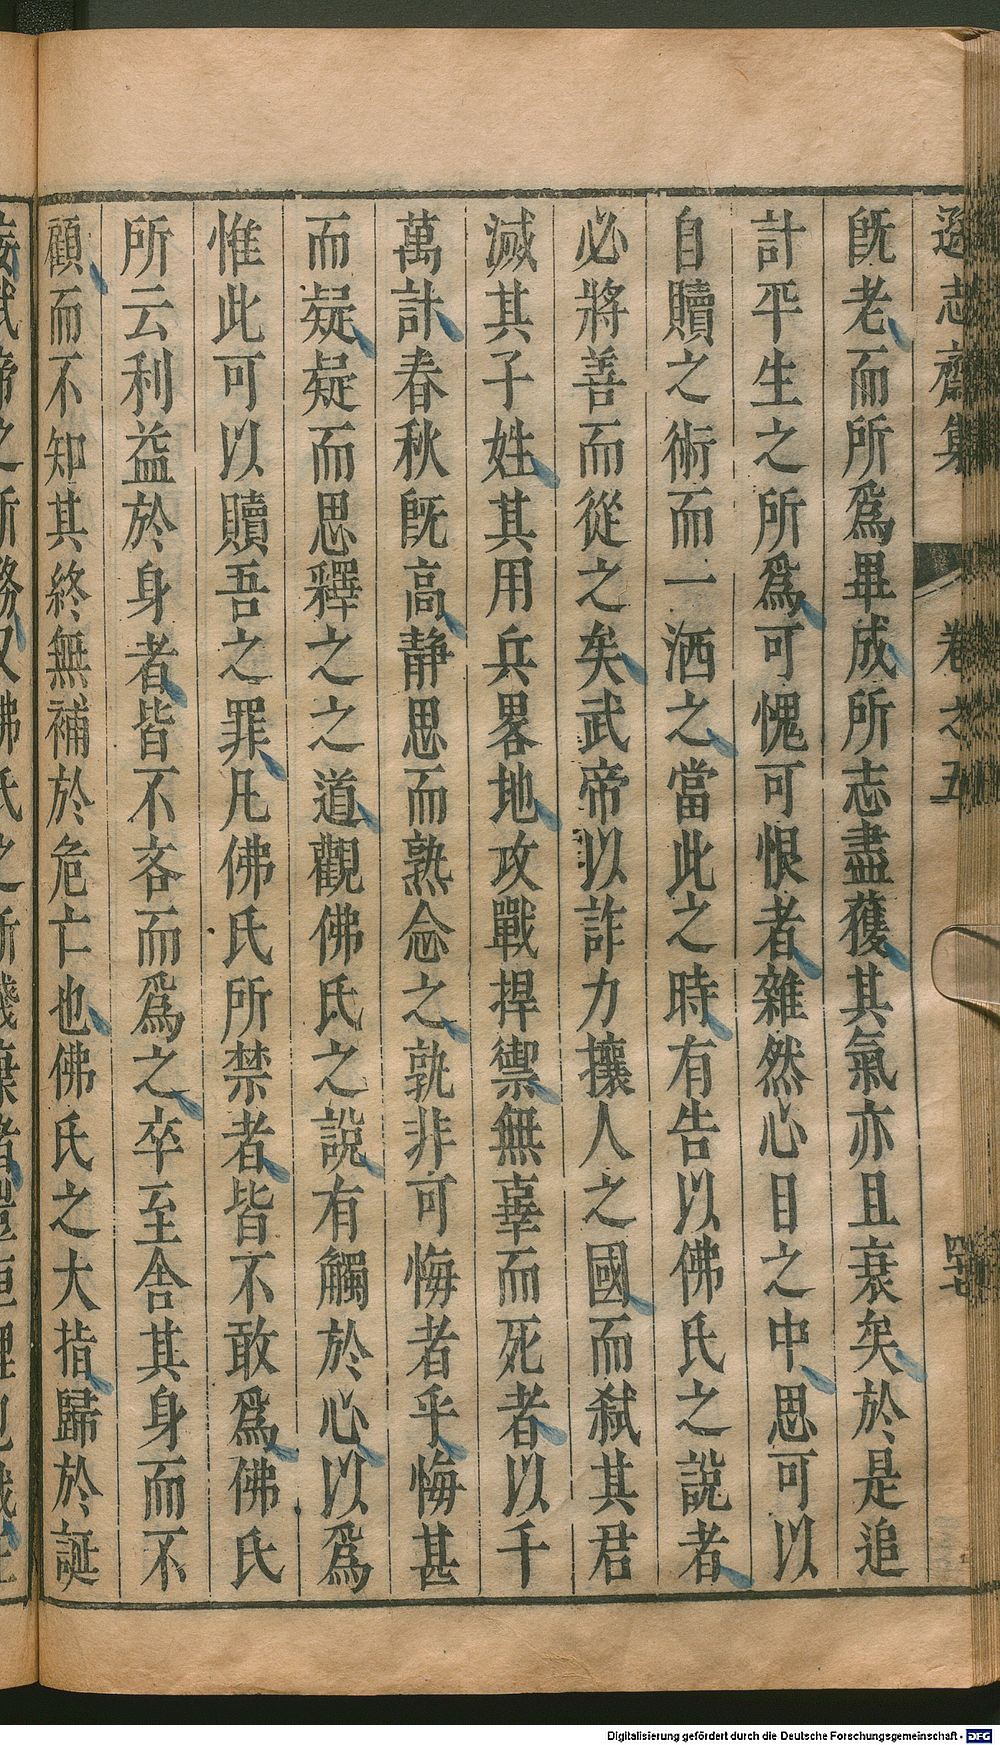 遜志齋集 卷之五 四七
旣老而所爲畢成所志盡獲其氣亦且衰矣於是追
計平生之所爲可愧可恨者雜然心目之中思可以
自贖之術而一洒之當此之時有告以佛氏之說者
必將善而從之矣武帝以詐力攘人之國而弑其君
滅其子姓其用兵畧地攻戰捍禦無辜而死者以千
萬計春秋旣高靜思而熟念之孰非可悔者乎悔甚
而疑疑而思釋之之道觀佛氏之說有觸於心以爲
惟此可以贖吾之罪凡佛氏所禁者皆不敢爲佛氏
所云利益於身者皆不吝而爲之卒至舍其身而不
顧而不知其終無補於危亡也佛氏之大指歸於誕
之所務又佛氏之所
Digitalisierung gefördert durch die Deutsche Forschungsgemeinschaft - DFG